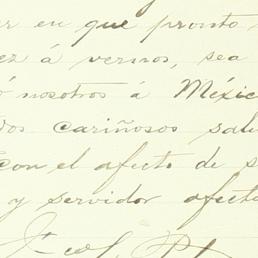 er en que pronto
ez á vernos, sea
ó nosotros á Méxic
dos cariñosos salu
con el afecto de s
y servidor afecto